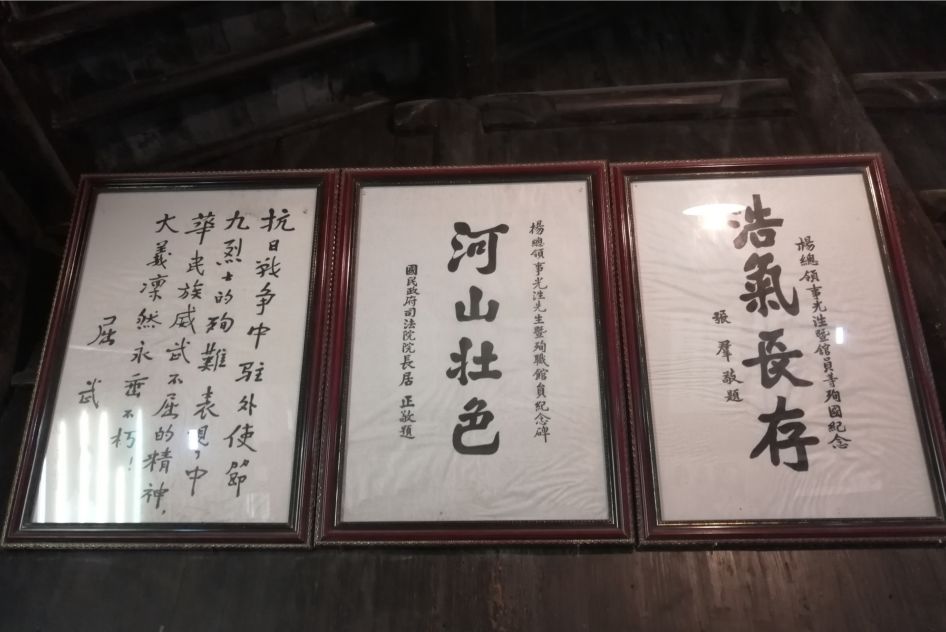 楊總領事光泩暨館員等殉國紀念
浩氣長存
張羣敬題
楊總領事光泩先生暨殉職館員紀念碑
河山壯色
國民政府司法院院長居正敬題
抗日战争中駐外使節
九烈士的殉難表現了中
華民族威武不屈的精神，
大義凜然永垂不朽！
屈武